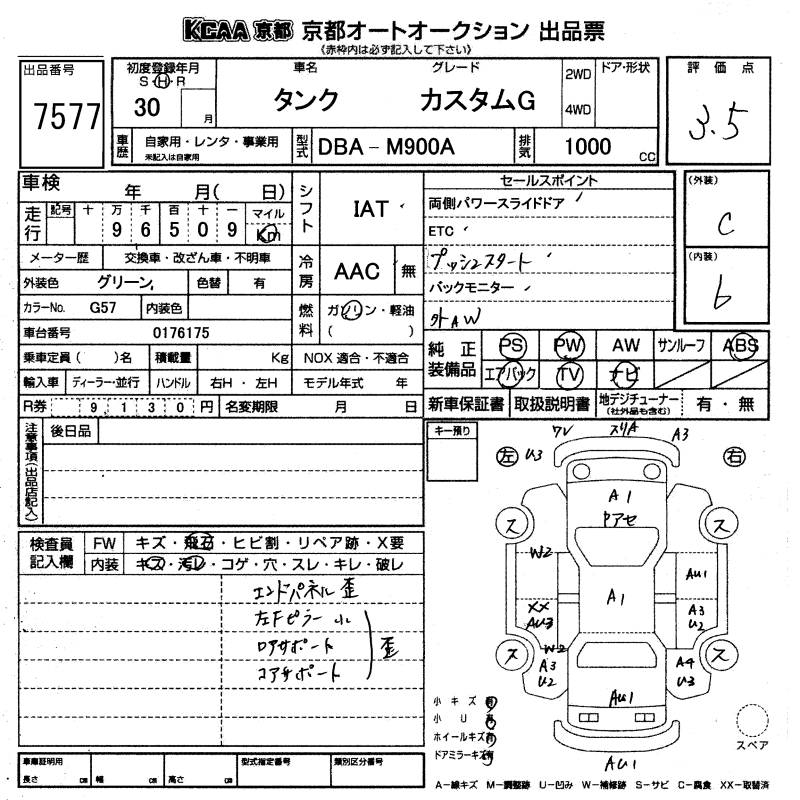 KCAA 京都 京都オートオークション 出品票
《赤枠内は必ず記入して下さい》
出品番号
7577
初度登録年月
S・H・R
30 月
車名
タンク
グレード
カスタムG
2WD
4WD
ドア・形状
評価点
3.5
車歴
自家用・レンタ・事業用
未記入は自家用
型式
DBA－M900A
排気
1000 cc
車検 年 月( 日)
走行
記号 十 万 千 百 十 一 マイル
9 6 5 0 9 Km
メーター歴 交換車・改ざん車・不明車
外装色 グリーン 色替 有
カラーNo. G57 内装色
車台番号 0176175
乗車定員( )名 積載量 Kg
輸入車 ディーラー・並行 ハンドル 右H・左H
R券 9,130円 名変期限 月 日
シフト
IAT
冷房
AAC 無
燃料
ガソリン・軽油
( )
NOX 適合・不適合
モデル年式 年
セールスポイント
両側パワースライドドア
ETC
プッシュスタート
バックモニター
外AW
(外装)
C
(内装)
b
純正装備品
PS PW AW サンルーフ ABS
エアバック TV ナビ
新車保証書 取扱説明書 地デジチューナー
(社外品も含む)
有・無
注意事項(出品店記入)
後日品
検査員記入欄
FW キズ・飛石・ヒビ割・リペア跡・X要
内装 キズ・汚レ・コゲ・穴・スレ・キレ・破レ
エンドパネル歪
左Fピラー小
ロアサポート
コアサポート
歪
キー預り
左
右
ワレ
スリA
A3
U3
A1
トアセ
ス
ス
W2
AU1
A1
XX
AU3
A3
U2
ス
ス
W2
A3
U2
A4
U3
AU1
AU1
小キズ 有
小U 有
ホイールキズ 有
ドアミラーキズ 有
スペア
車庫証明用
長さ cm 幅 cm 高さ cm
型式指定番号
類別区分番号
A－線キズ M－調整跡 U－凹み W－補修跡 S－サビ C－腐食 XX－取替済